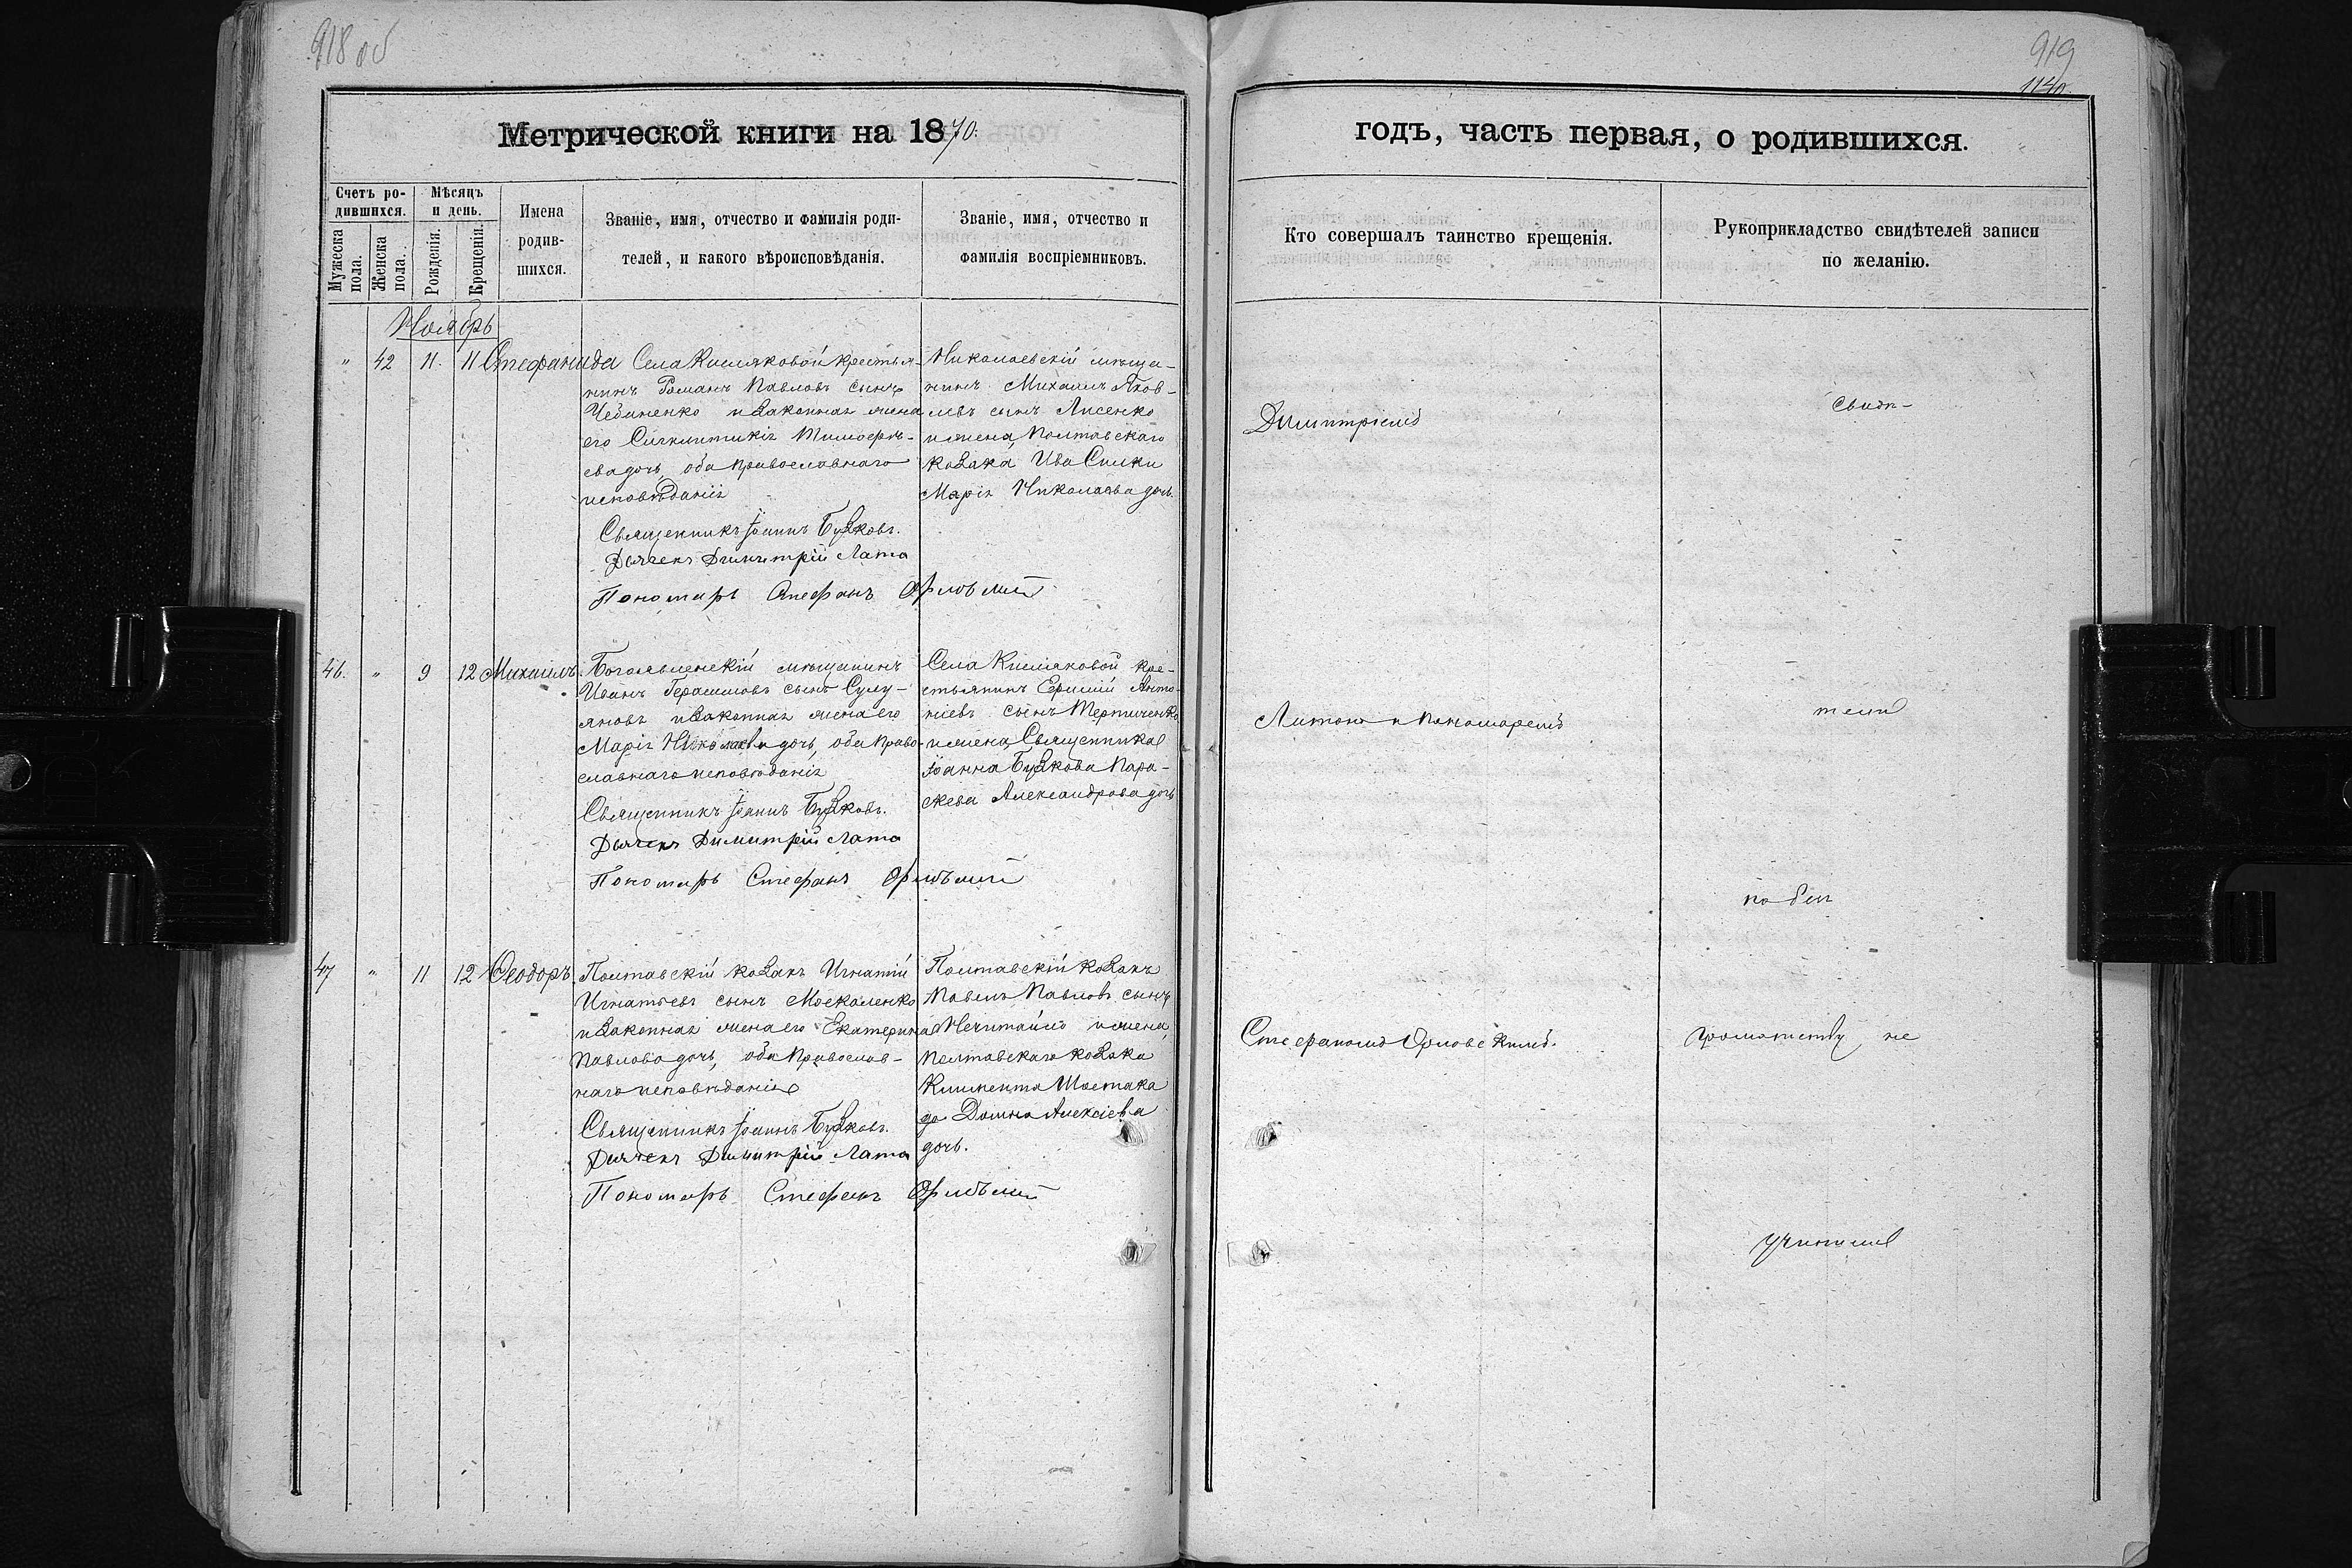 918 об
919
114
Метрической книги на 1870.
годъ, часть первая, о родившихся.
Счетъ ро-
дившихся.
Мѣсяцъ
и день.
Мужеска
пола.
Женска
пола.
Рожденія.
Крещенія.
Имена
родив-
шихся.
Званіе, имя, отчество и фамилія роди-
телей, и какого вѣроисповѣданія.
Званіе, имя, отчество и
фамилія воспріемниковъ.
Кто совершалъ таинство крещенія.
Рукоприкладство свидѣтелей записи
по желанію.
Ноябрь
" 42 11. 11 Стефанида
Села Кисляковой крестья-
нинъ Романъ Павловъ сынъ
и законная жена
его Сигклитикія Тимофее-
ва дочь, оба православнаго
исповѣданія
Священникъ Іоаннъ Бузковъ.
Дьячекъ Димитрій Лата
Пономарь Стефанъ
Николаевскій мѣща-
нинъ Михаилъ Яков-
левъ сынъ Лисенко
и жена Полтавскаго
козака Ива
Марія Николаева дочь.
46. " 9 12 Михаилъ.
Богоявленскій мѣщанинъ
Иванъ Герасимовъ сынъ Сулу-
яновъ и законная жена его
Марія Николаева дочь, оба право-
славнаго исповѣданія
Священникъ Іоаннъ Бузковъ.
Дьячекъ Димитрій Лата
Пономарь Стефанъ
Села Кисляковой кре-
стьянинъ Ермій Анто-
ніевъ сынъ Тертиченко
и жена Священника
Іоанна Бузкова Пара-
скева Александрова дочь
47 " 11 12 Ѳеодоръ.
Полтавскій козакъ Игнатій
Игнатьевъ сынъ Москаленко
и законная жена его Екатерина
Павлова дочь, оба православ-
наго исповѣданія
Священникъ Іоаннъ Бузковъ.
Дьячекъ Димитрій Лата
Пономарь Стефанъ
Полтавскій козакъ
Павелъ Павловъ сынъ
Нечитайло и жена
Полтавскаго козака
Климента Шостака
до Домна Алексіева
дочь.
Димитріемъ
Латою и пономаремъ
Стефаномъ Орловскимъ.
Свидѣ-
тели
по сей
грамотству не
учинили